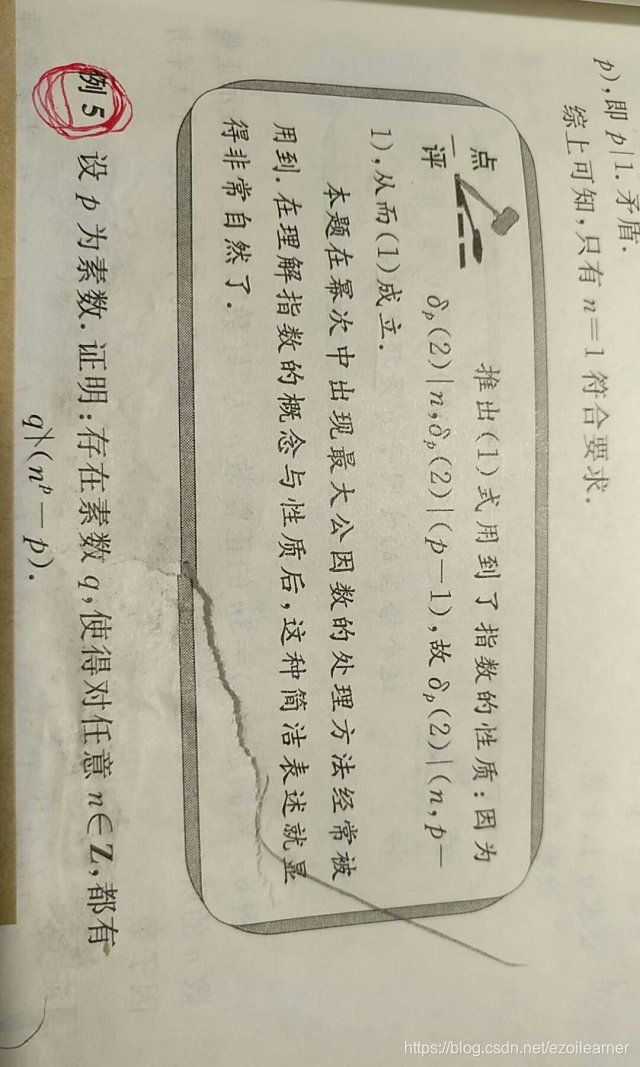 p),即 p|1.矛盾.
综上可知,只有 n=1 符合要求.
点评
推出(1)式用到了指数的性质:因为
δₚ(2)|n,δₚ(2)|(p-1),故 δₚ(2)|(n,p-
1),从而(1)成立.
本题在幂次中出现最大公因数的处理方法经常被
用到.在理解指数的概念与性质后,这种简洁表述就显
得非常自然了.
例 5 设 p 为素数.证明:存在素数 q,使得对任意 n∈Z,都有
q∤(nᵖ-p).
https://blog.csdn.net/ezoilearner